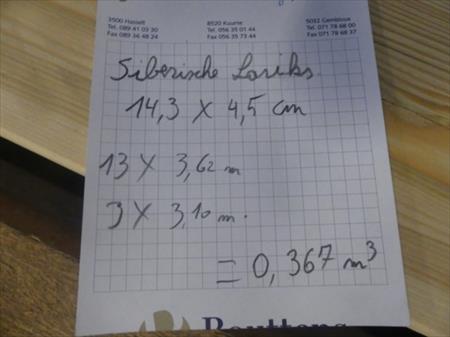 3500 Hasselt
Tel. 089 41 03 30
Fax 089 36 48 24
8520 Kuurne
Tel. 056 35 01 44
Fax 056 35 73 44
5032 Gembloux
Tel. 071 78 68 00
Fax 071 78 68 37
Siberische Lariks
14,3 X 4,5 cm
13 X 3,62 m
3 X 3,10 m.
= 0,367 m³